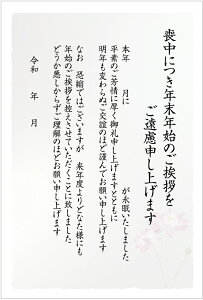 喪中につき年末年始のご挨拶を
ご遠慮申し上げます
本年　月に　　　　が永眠いたしました
平素のご芳情に厚く御礼申し上げますとともに
明年も変わらぬご交誼のほど謹んでお願い申し上げます
なお　恐縮ではございますが　来年度よりどなた様にも
年始のご挨拶を控えさせていただくことに致しました
どうか悪しからずご理解のほどお願い申し上げます
令和　年　月